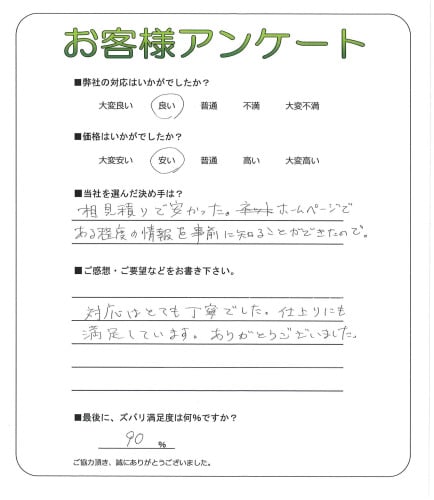 お客様アンケート
■弊社の対応はいかがでしたか?
大変良い 良い 普通 不満 大変不満
■価格はいかがでしたか?
大変安い 安い 普通 高い 大変高い
■当社を選んだ決め手は?
相見積りで安かった。ネット ホームページで
ある程度の情報を事前に知ることができたので。
■ご感想・ご要望などをお書き下さい。
対応はとても丁寧でした。仕上りにも
満足しています。ありがとうございました。
■最後に、ズバリ満足度は何%ですか?
90 %
ご協力頂き、誠にありがとうございました。